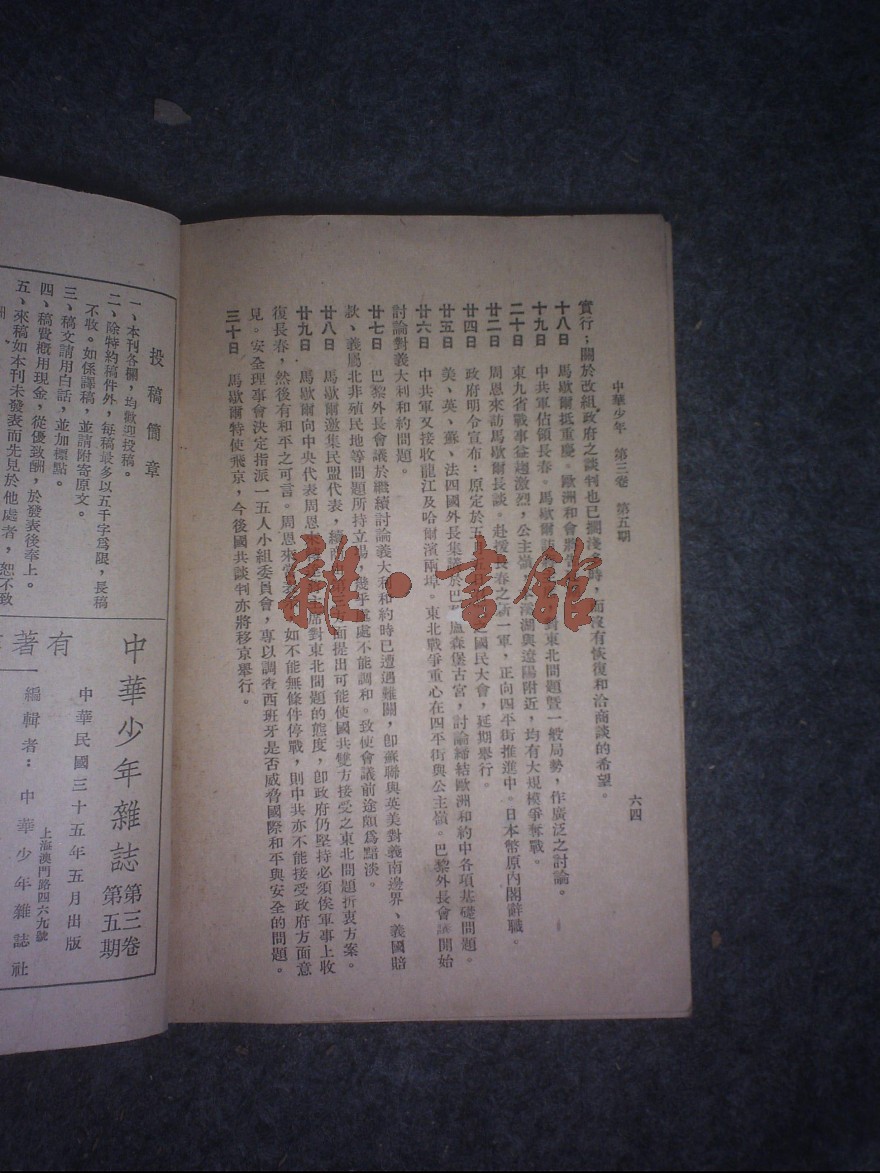 中華少年　第三卷　第五期
六四
實行；關於改組政府之談判也已擱淺
時，而沒有恢復和洽商談的希望。
十八日　馬歇爾抵重慶。歐洲和會將
十九日　中共軍佔領長春。馬歇爾訪
對東北問題暨一般局勢，作廣泛之討論。
二十日　東九省戰事益趨激烈，公主嶺
湖與遼陽附近，均有大規模爭奪戰。
廿二日　周恩來訪馬歇爾長談。赴援長春之新一軍，正向四平街推進中。日本幣原內閣辭職。
廿四日　政府明令宣布：原定於五月五日
之國民大會，延期舉行。
廿五日　美、英、蘇、法四國外長集議於巴
盧森堡古宮，討論締結歐洲和約中各項基礎問題。
廿六日　中共軍又接收龍江及哈爾濱兩埠。東北戰爭重心在四平街與公主嶺。巴黎外長會議開始
討論對義大利和約問題。
廿七日　巴黎外長會議於繼續討論義大利和約時已遭遇難關，卽蘇聯與英美對義南邊界、義國賠
款、義屬北非殖民地等問題所持立場，幾乎處處不能調和。致使會議前途頗爲黯淡。
廿八日　馬歇爾邀集民盟代表，續商
方面提出可能使國共雙方接受之東北問題折衷方案。
廿九日　馬歇爾向中央代表周恩來
主席對東北問題的態度，卽政府仍堅持必須俟軍事上收
復長春，然後有和平之可言。周恩來
如不能無條件停戰，則中共亦不能接受政府方面意
見。安全理事會決定指派一五人小組委員會，專以調查西班牙是否威脅國際和平與安全的問題。
三十日　馬歇爾特使飛京，今後國共談判亦將移京舉行。
雜·書館
投稿簡章
一、本刊各欄，均歡迎投稿。
二、除特約稿件外，每稿最多以五千字爲限，長稿
不收。如係譯稿，並請附寄原文。
三、稿文請用白話，並加標點。
四、稿費槪用現金，從優致酬，於發表後奉上。
五、來稿如本刊未發表而先見於他處者，恕不致
有著
中華少年雜誌　第三卷第五期
中華民國三十五年五月出版
編輯者：中華少年雜誌社
上海澳門路四六九號